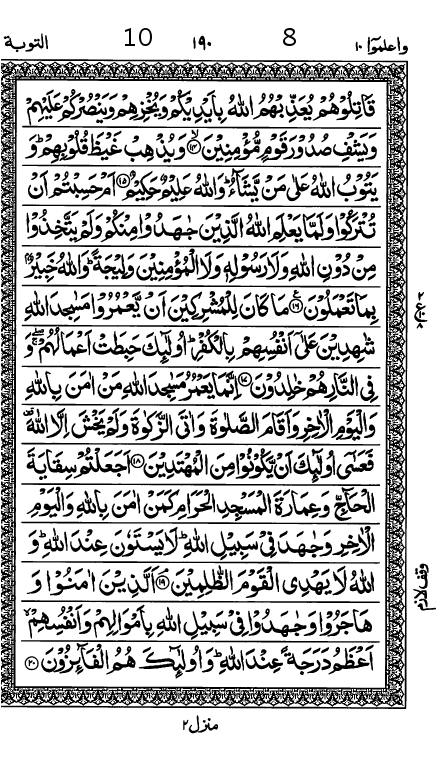 التوبة ٩ 10 ١٩٠ 8 واعلموٓا ١٠
قَاتِلُوْهُمْ يُعَذِّبْهُمُ اللّٰهُ بِاَيْدِيْكُمْ وَيُخْزِهِمْ وَيَنْصُرْكُمْ عَلَيْهِمْ
وَيَشْفِ صُدُوْرَ قَوْمٍ مُّؤْمِنِيْنَ ۙ﴿۱۴﴾ وَيُذْهِبْ غَيْظَ قُلُوْبِهِمْ ؕ وَ
يَتُوْبُ اللّٰهُ عَلٰى مَنْ يَّشَآءُ ؕ وَاللّٰهُ عَلِيْمٌ حَكِيْمٌ ﴿۱۵﴾ اَمْ حَسِبْتُمْ اَنْ
تُتْرَكُوْا وَلَمَّا يَعْلَمِ اللّٰهُ الَّذِيْنَ جٰهَدُوْا مِنْكُمْ وَلَمْ يَتَّخِذُوْا
مِنْ دُوْنِ اللّٰهِ وَلَا رَسُوْلِهٖ وَلَا الْمُؤْمِنِيْنَ وَلِيْجَةً ؕ وَاللّٰهُ خَبِيْرٌۢ
بِمَا تَعْمَلُوْنَ ﴿۱۶﴾ مَا كَانَ لِلْمُشْرِكِيْنَ اَنْ يَّعْمُرُوْا مَسٰجِدَ اللّٰهِ
شٰهِدِيْنَ عَلٰٓى اَنْفُسِهِمْ بِالْكُفْرِ ؕ اُولٰٓئِكَ حَبِطَتْ اَعْمَالُهُمْ ۖۚ وَ
فِى النَّارِ هُمْ خٰلِدُوْنَ ﴿۱۷﴾ اِنَّمَا يَعْمُرُ مَسٰجِدَ اللّٰهِ مَنْ اٰمَنَ بِاللّٰهِ
وَالْيَوْمِ الْاٰخِرِ وَاَقَامَ الصَّلٰوةَ وَاٰتَى الزَّكٰوةَ وَلَمْ يَخْشَ اِلَّا اللّٰهَ
فَعَسٰٓى اُولٰٓئِكَ اَنْ يَّكُوْنُوْا مِنَ الْمُهْتَدِيْنَ ﴿۱۸﴾ اَجَعَلْتُمْ سِقَايَةَ
الْحَآجِّ وَعِمَارَةَ الْمَسْجِدِ الْحَرَامِ كَمَنْ اٰمَنَ بِاللّٰهِ وَالْيَوْمِ
الْاٰخِرِ وَجٰهَدَ فِىْ سَبِيْلِ اللّٰهِ ؕ لَا يَسْتَوٗنَ عِنْدَ اللّٰهِ ؕ وَ
اللّٰهُ لَا يَهْدِى الْقَوْمَ الظّٰلِمِيْنَ ۘ﴿۱۹﴾ اَلَّذِيْنَ اٰمَنُوْا وَ
هَاجَرُوْا وَجٰهَدُوْا فِىْ سَبِيْلِ اللّٰهِ بِاَمْوَالِهِمْ وَاَنْفُسِهِمْ ۙ
اَعْظَمُ دَرَجَةً عِنْدَ اللّٰهِ ؕ وَاُولٰٓئِكَ هُمُ الْفَآئِزُوْنَ ﴿۲۰﴾
وقف لازم
منزل ٢